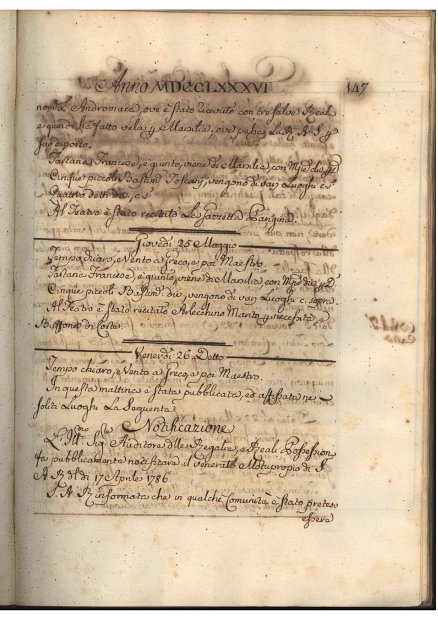 Anno MDCCLXXXVI
147
nom. L'Andromaca, ove è stato ricevuto con tre salve Reali
e quindi ha fatto vela p. Marsilia, ove passa La R. A. S. p.
suo diporto.
Tartana Francese, è quinto, viene di Marsilia, con
Cinque piccoli Bastim. Toscani, vengono da varj Luoghi
Quattro detti
Al Teatro è stato recitato La Gazzetta Parigina
Giovedì 25 Maggio
Tempo chiaro, e Vento a Greco, e poi Maestro.
Tartana Francese, è quinto, viene di Marsilia con
Cinque piccoli Bastim. div. vengono di varj Luoghi c. sopra
Al Teatro è stato recitato Arlecchino Manto p. necessità, e
Buffone di Corte
Venerdì 26 Detto
Tempo chiaro, e Vento a Greco, e poi Maestro.
In questa mattina è stata pubblicata, ed affissata ne
soliti Luoghi La Seguente
Notificazione
L'Ill.mo Sig.re Auditore delle Regalie, e Reali Possessioni
fa pubblicamente notificare il venerato Motuproprio di S.
A. R. del dì 17 Aprile 1786.
S. A. R. informata che in qualche Comunità è stato preteso
essere